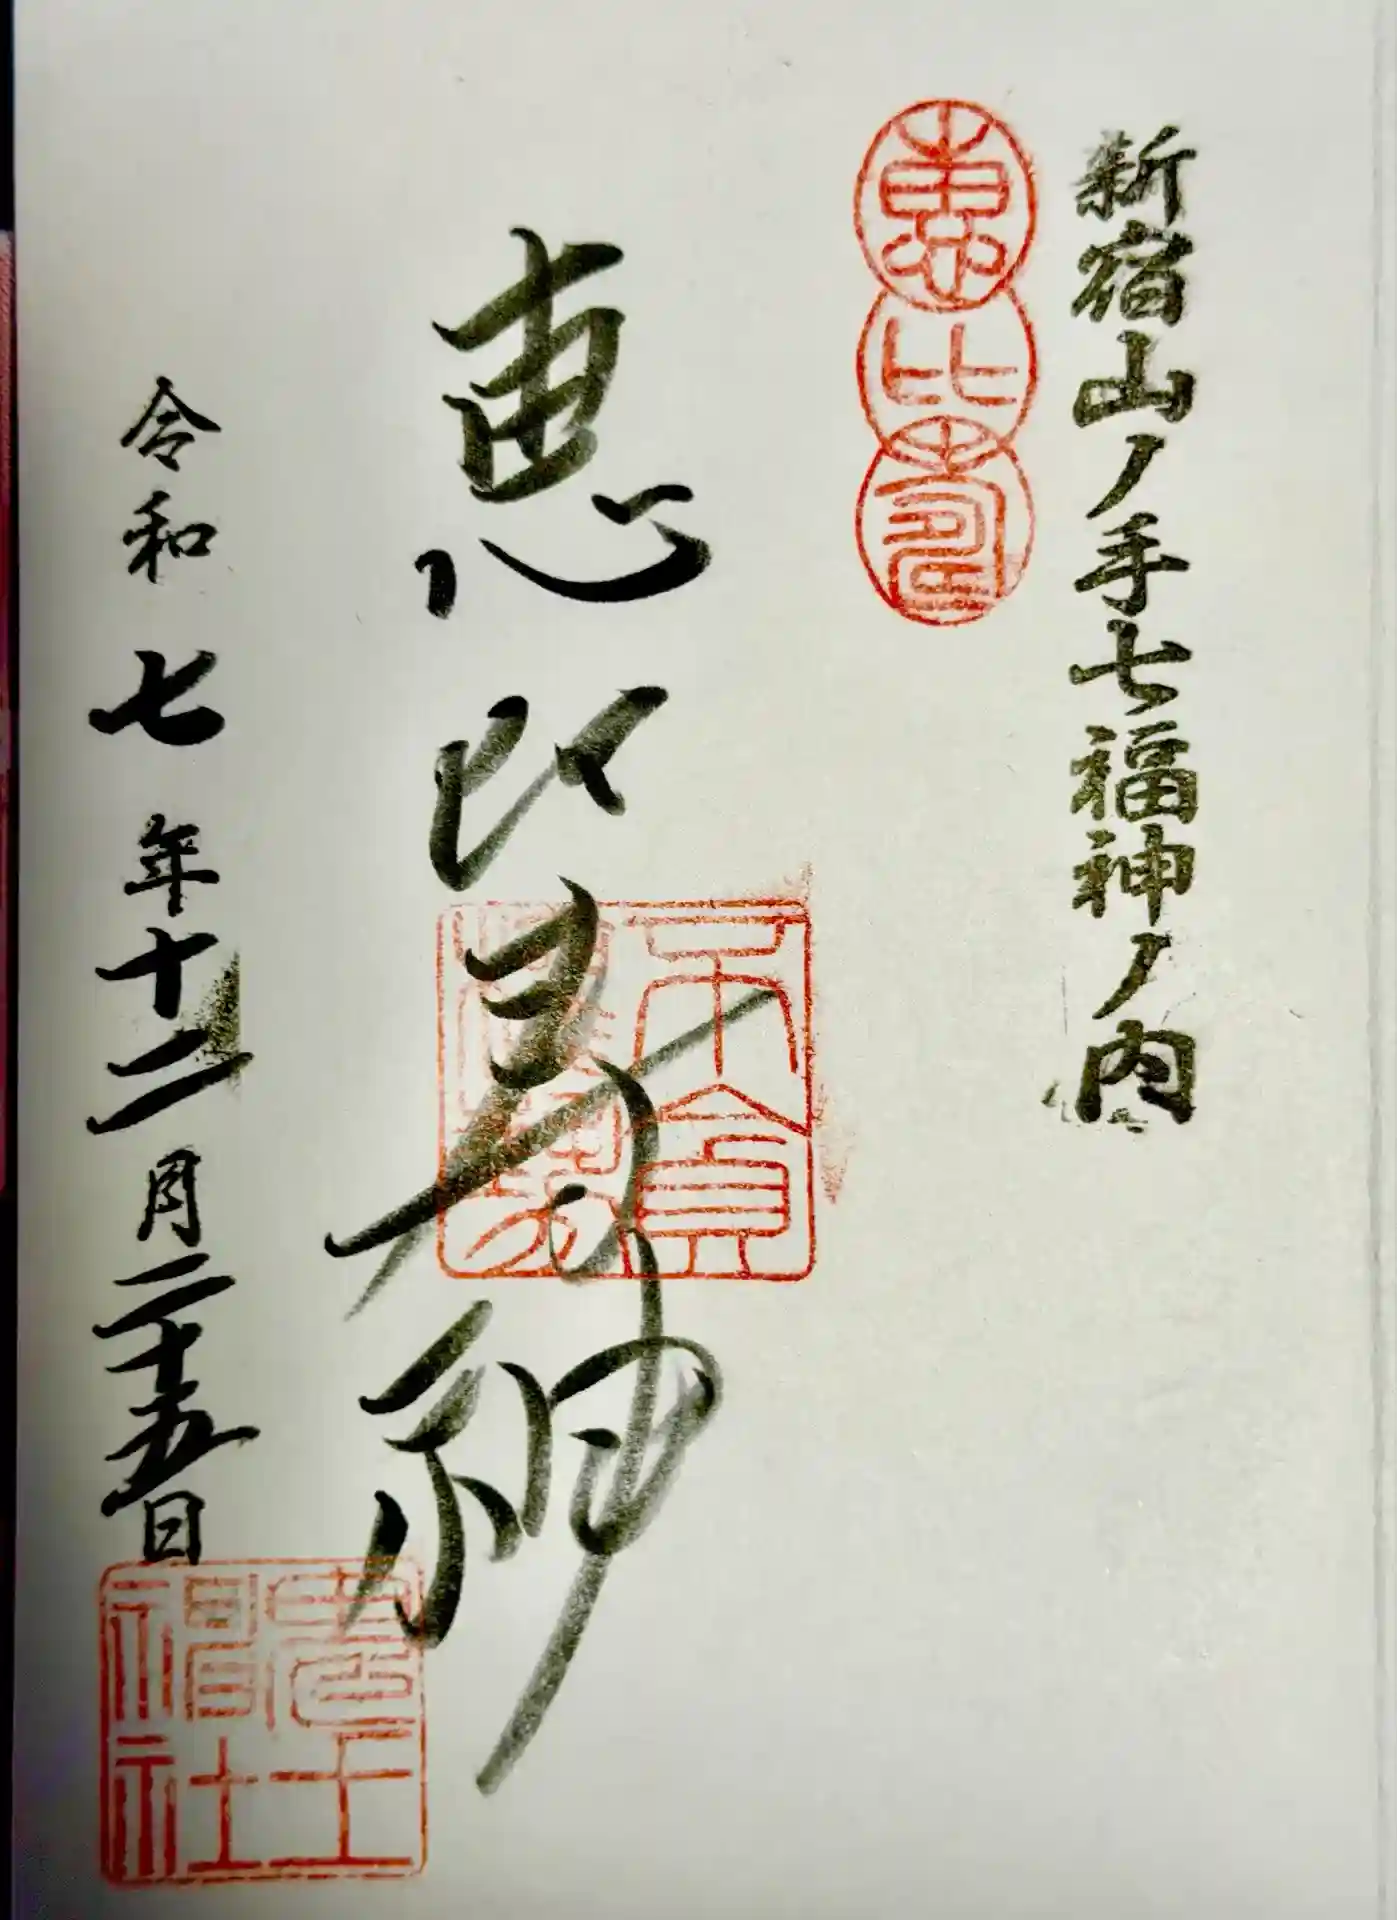 新宿山ノ手七福神ノ内
恵比寿
恵比寿神
令和七年十二月二十五日
鬼王神社